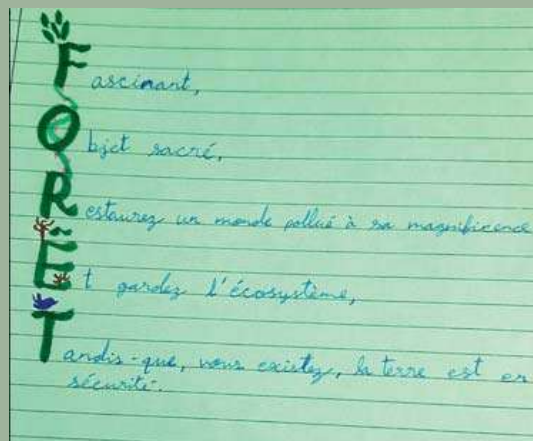 Fascinant,
Objet sacré,
Restaurez un monde pollué à sa magnificence
Et gardez l'écosystème,
Tandis-que, vous existez, la terre est en
sécurité.